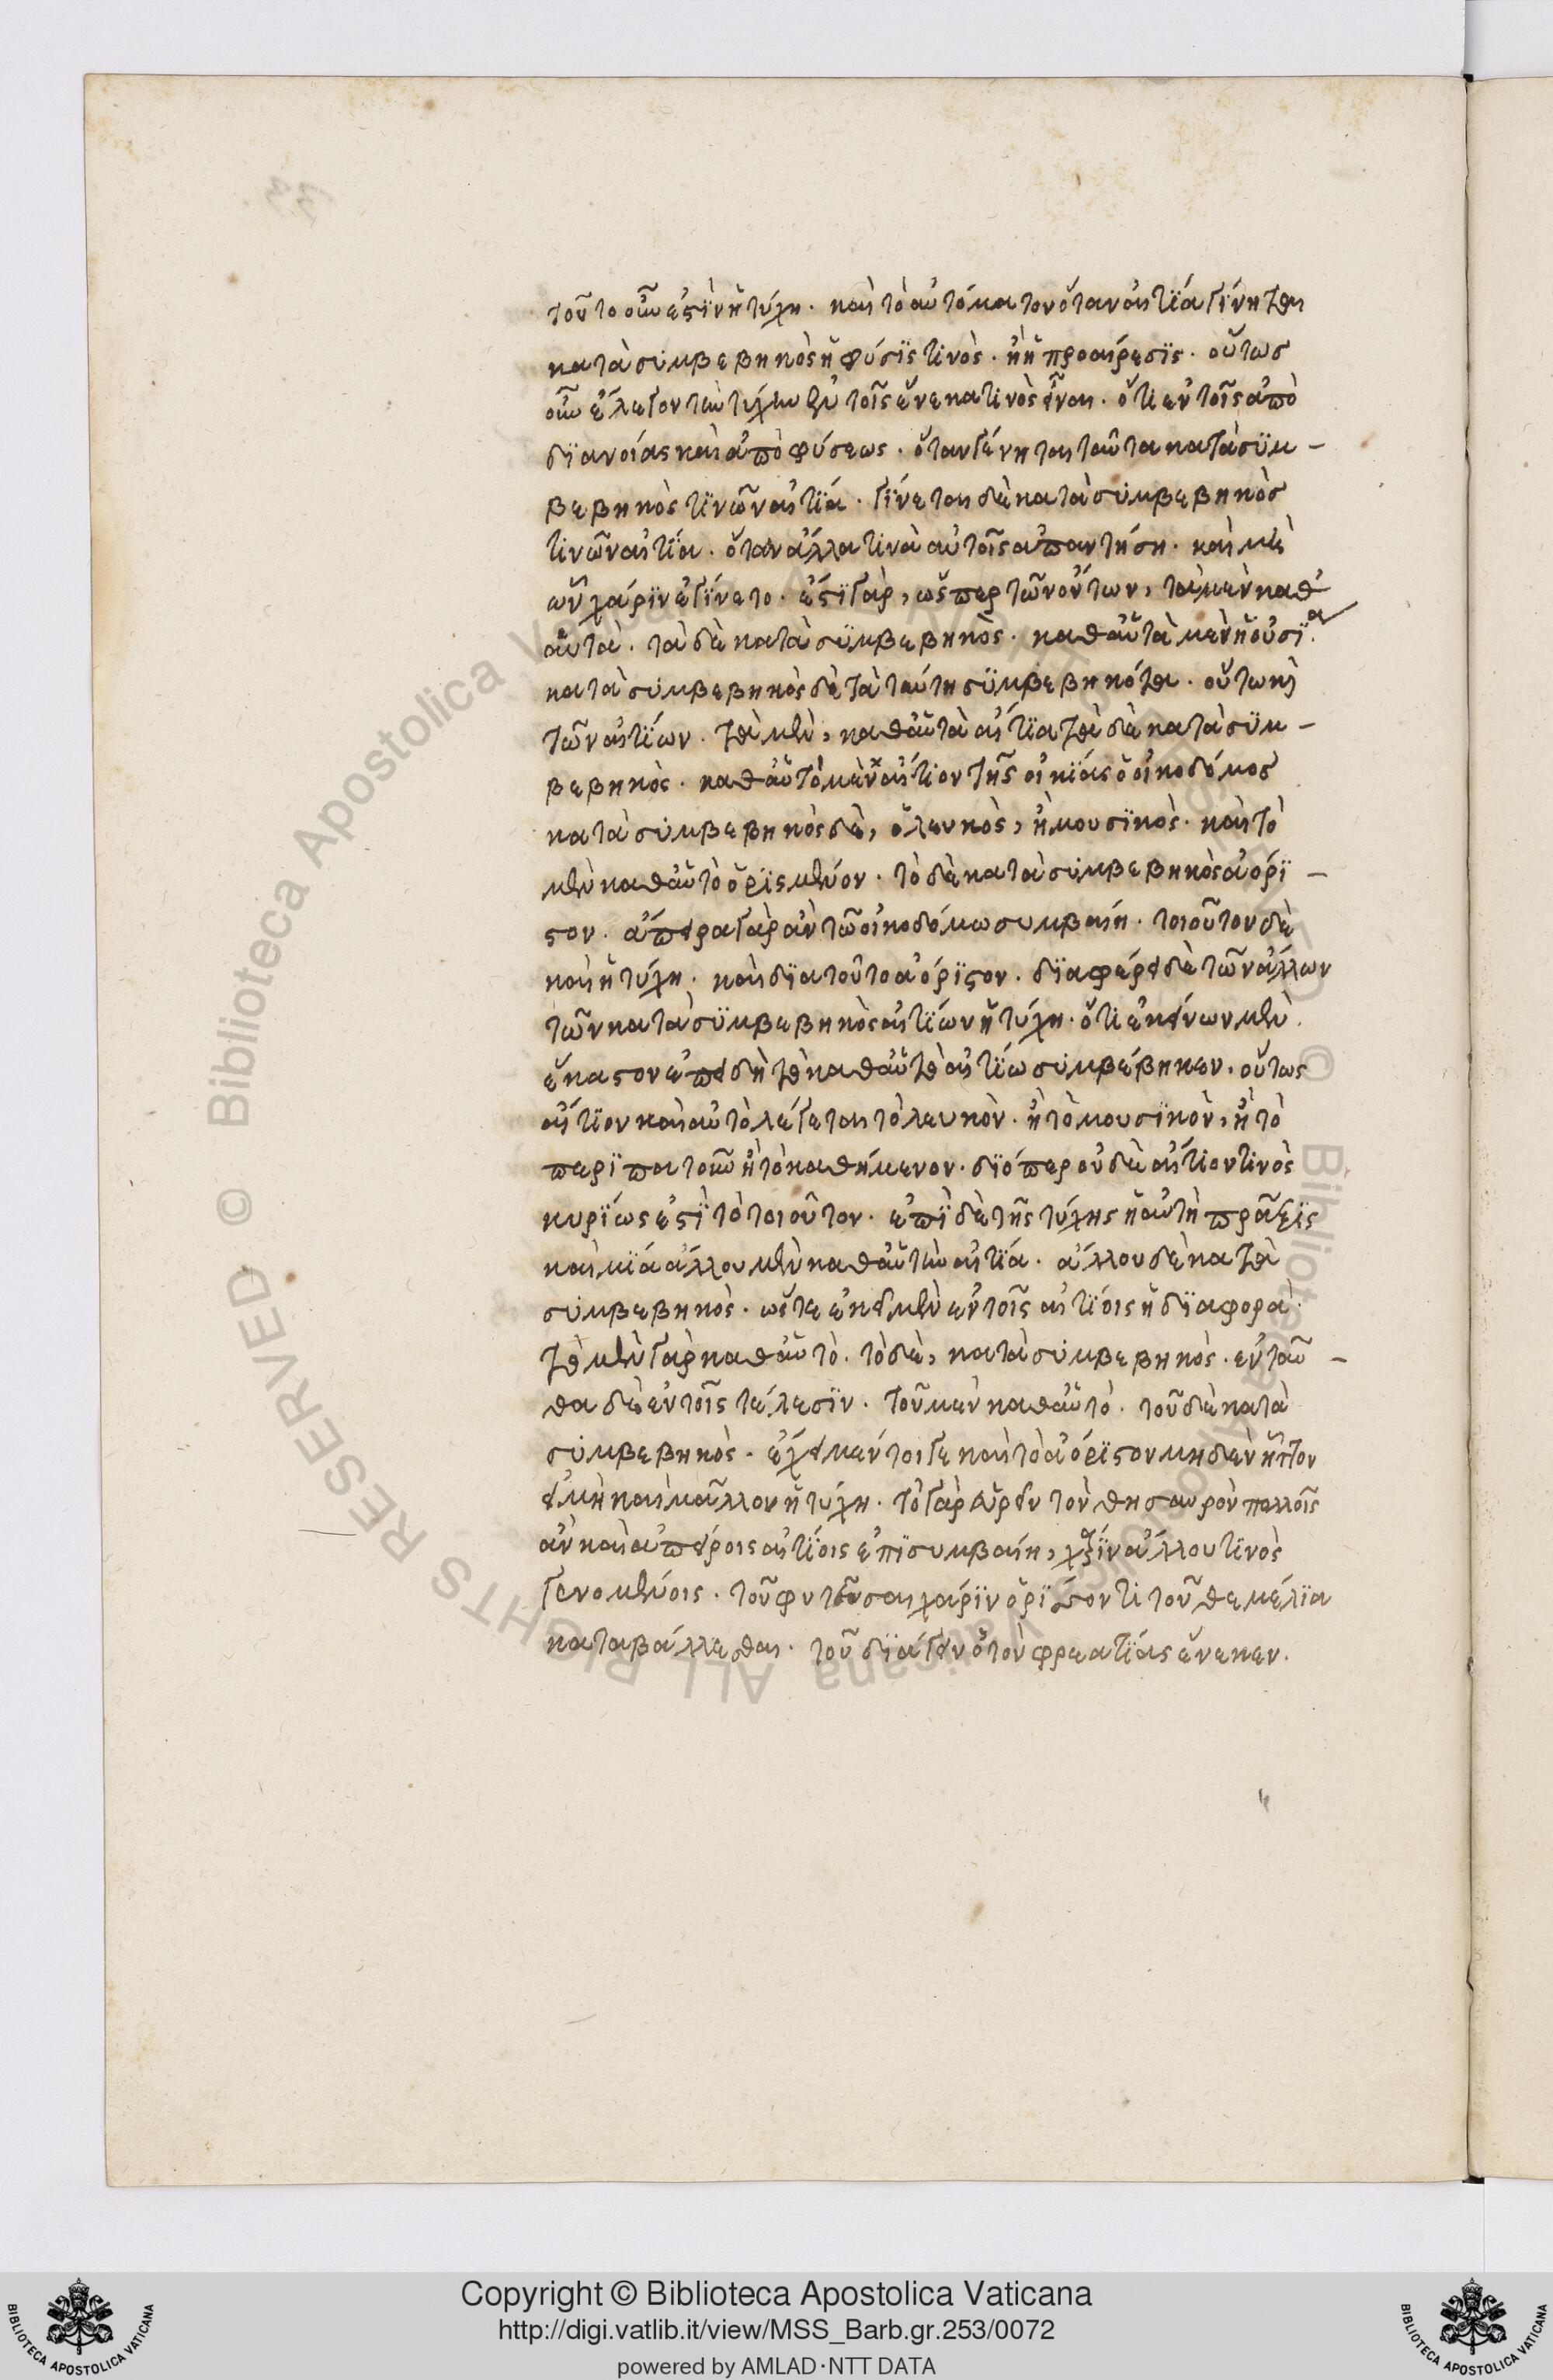 τοῦτο οὖν ἐστὶν ἡ τύχη. καὶ τὸ αὐτόματον ὅταν αἰτία γίνηται
κατὰ συμβεβηκὸς ἡ φύσις τινὸς. ἢ ἡ προαίρεσις. οὕτως
οὖν ἔλεγον τὴν τύχην ἐν τοῖς ἕνεκα τινὸς εἶναι. ὅτι ἐν τοῖς ἀπὸ
διανοίας καὶ ἀπὸ φύσεως. ὅταν γένηται ταῦτα κατὰ συμ-
βεβηκὸς τινῶν αἰτία. γίνεται δὲ κατὰ συμβεβηκὸς
τινῶν αἰτία. ὅταν ἄλλα τινὰ αὐτοῖς ἀπαντήση. καὶ μὴ
ὧν χάριν ἐγίνετο. ἔστι γὰρ, ὥσπερ τῶν ὄντων, τὰ μὲν καθ'
αὑτὰ. τὰ δὲ κατὰ συμβεβηκὸς. καθ' αὑτὰ μὲν ἡ οὐσία.
κατὰ συμβεβηκὸς δὲ τὰ ταύτη συμβεβηκότα. οὕτω καὶ
τῶν αἰτίων. τὰ μὲν, καθ' αὑτὰ αἴτια τὰ δὲ κατὰ συμ-
βεβηκὸς. καθ' αὑτὸ μὲν αἴτιον τῆς οἰκίας ὁ οἰκοδόμος
κατὰ συμβεβηκὸς δὲ, ὁ λευκὸς, ἢ μουσικὸς. καὶ τὸ
μὲν καθ' αὑτὸ ὁρισμένον. τὸ δὲ κατὰ συμβεβηκὸς ἀόρι-
στον. ἄπειρα γὰρ ἂν τῶ οἰκοδόμω συμβαίη. τοιοῦτον δὲ
καὶ ἡ τύχη. καὶ διατοῦτο ἀόριστον. διαφέρει δὲ τῶν ἄλλων
τῶν κατὰ συμβεβηκὸς αἰτίων ἡ τύχη. ὅτι ἐκείνων μὲν
ἕκαστον ἐπειδὴ τῶ καθ' αὑτὸ αἰτίω συμβέβηκεν. οὕτως
αἴτιον καὶ αὐτὸ λέγεται τὸ λευκὸν. ἢ τὸ μουσικὸν, ἢ τὸ
περιπατοῦν ἢ τὸ καθήμενον. διόπερ οὐδὲ αἴτιον τινὸς
κυρίως ἐστὶ τὸ τοιοῦτον. ἐπὶ δὲ τῆς τύχης ἡ αὐτὴ πρᾶξις
καὶ μία ἄλλου μὲν καθ' αὑτὴν αἰτία. ἄλλου δὲ κατὰ
συμβεβηκὸς. ὥστε ἐκεῖ μὲν ἐν τοῖς αἰτίοις ἡ διαφορὰ.
τὸ μὲν γὰρ καθ' αὑτὸ. τὸ δὲ, κατὰ συμβεβηκὸς. ἐνταῦ-
θα δὲ ἐν τοῖς τέλεσιν. τοῦ μὲν καθ' αὑτὸ. τοῦ δὲ κατὰ
συμβεβηκὸς. ἔχει μέντοι γε καὶ τὸ ἀόριστον μηδὲν ἧττον
εἰ μὴ καὶ μᾶλλον ἡ τύχη. τὸ γὰρ εὑρεῖν τὸν θησαυρὸν πολλοῖς
ἂν καὶ ἀπείροις αἰτίοις ἐπισυμβαίη, χάριν ἄλλου τινὸς
γενομένοις. τοῦ φυτεῦσαι χάριν ὀρύσσοντι τοῦ θεμέλια
καταβάλλεσθαι. τοῦ διάγειν ὀχετὸν φρεατίας ἕνεκεν.
Copyright © Biblioteca Apostolica Vaticana
http://digi.vatlib.it/view/MSS_Barb.gr.253/0072
powered by AMLAD·NTT DATA